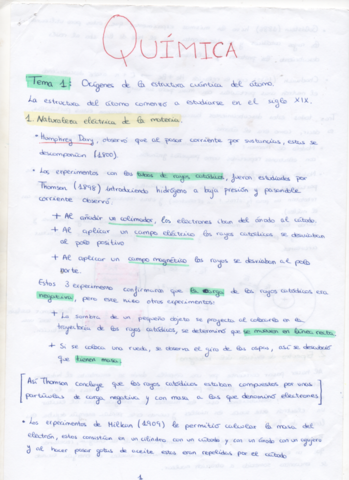 QUÍMICA
Tema 1: Orígenes de la estructura cuántica del átomo.
La estructura del átomo comenzó a estudiarse en el siglo XIX.
1. Naturaleza eléctrica de la materia.
• Humphrey Davy, observó que al pasar corriente por sustancias, estas se
descomponían (1800).
• Los experimentos con los tubos de rayos catódicos, fueron estudiados por
Thomson (1898) introduciendo hidrógeno a baja presión y pasándole
corriente observó:
+ Al añadir un colimador, los electrones iban del ánodo al cátodo.
+ Al aplicar un campo eléctrico los rayos catódicos se desviaban
al polo positivo
+ Al aplicar un campo magnético los rayos se desviaban al polo
norte.
Estos 3 experimentos confirmaron que la carga de los rayos catódicos era
negativa, pero este hizo otros experimentos:
+ La sombra de un pequeño objeto se proyecta al colocarlo en la
trayectoria de los rayos catódicos, se determinó que se mueven en línea recta.
+ Si se coloca una rueda, se observa el giro de las aspas, así se descubrió
que tienen masa.
Así Thomson concluye que los rayos catódicos estaban compuestos por unas
partículas de carga negativa y con masa a las que denominó electrones
• Los experimentos de Millikan (1909) le permitió calcular la masa del
electrón, estos consistían en un cilindro con un cátodo y con un ánodo con agujero
y al hacer pasar gotas de aceite estas eran repelidas por el cátodo
1